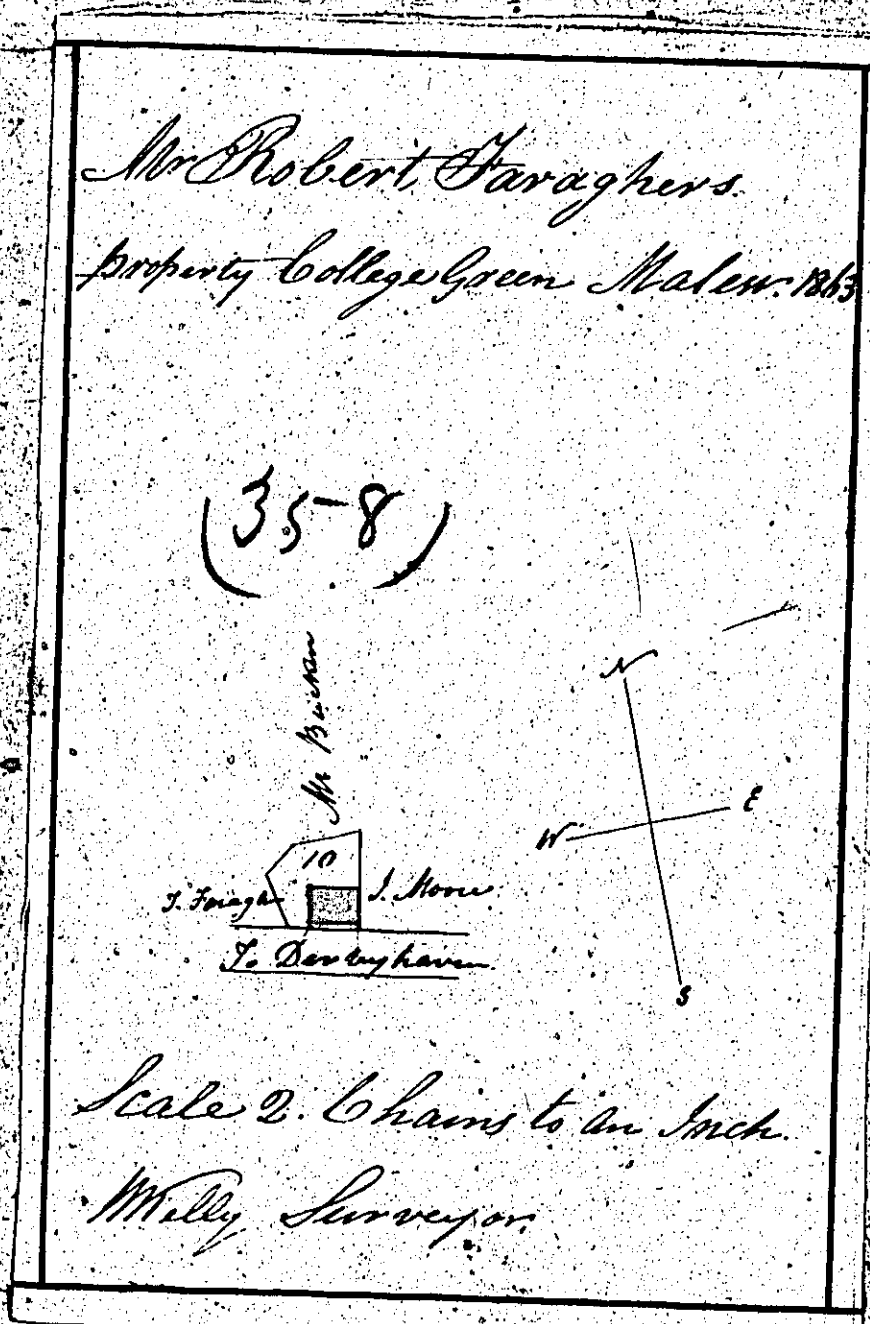 Mr Robert Faraghers.
property College Green Malew. 1863
(35-8)
Mr
N
W
E
S
10
J. Moore
To Derbyhaven.
Scale 2. Chains to an Inch.
WKelly Surveyor.